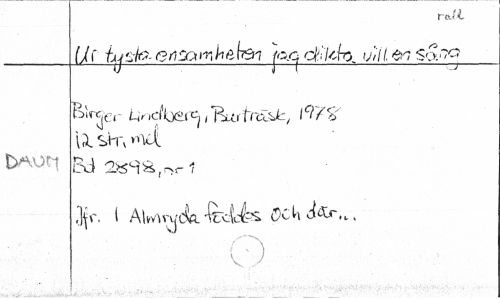 rall
Ur tysta ensamheten jag dikta vill en sång
Birger Lindberg, Burträsk, 1978
12 str, mel
DAUM Bd 2898, nr 1
Jfr. I Almryda föddes och där...